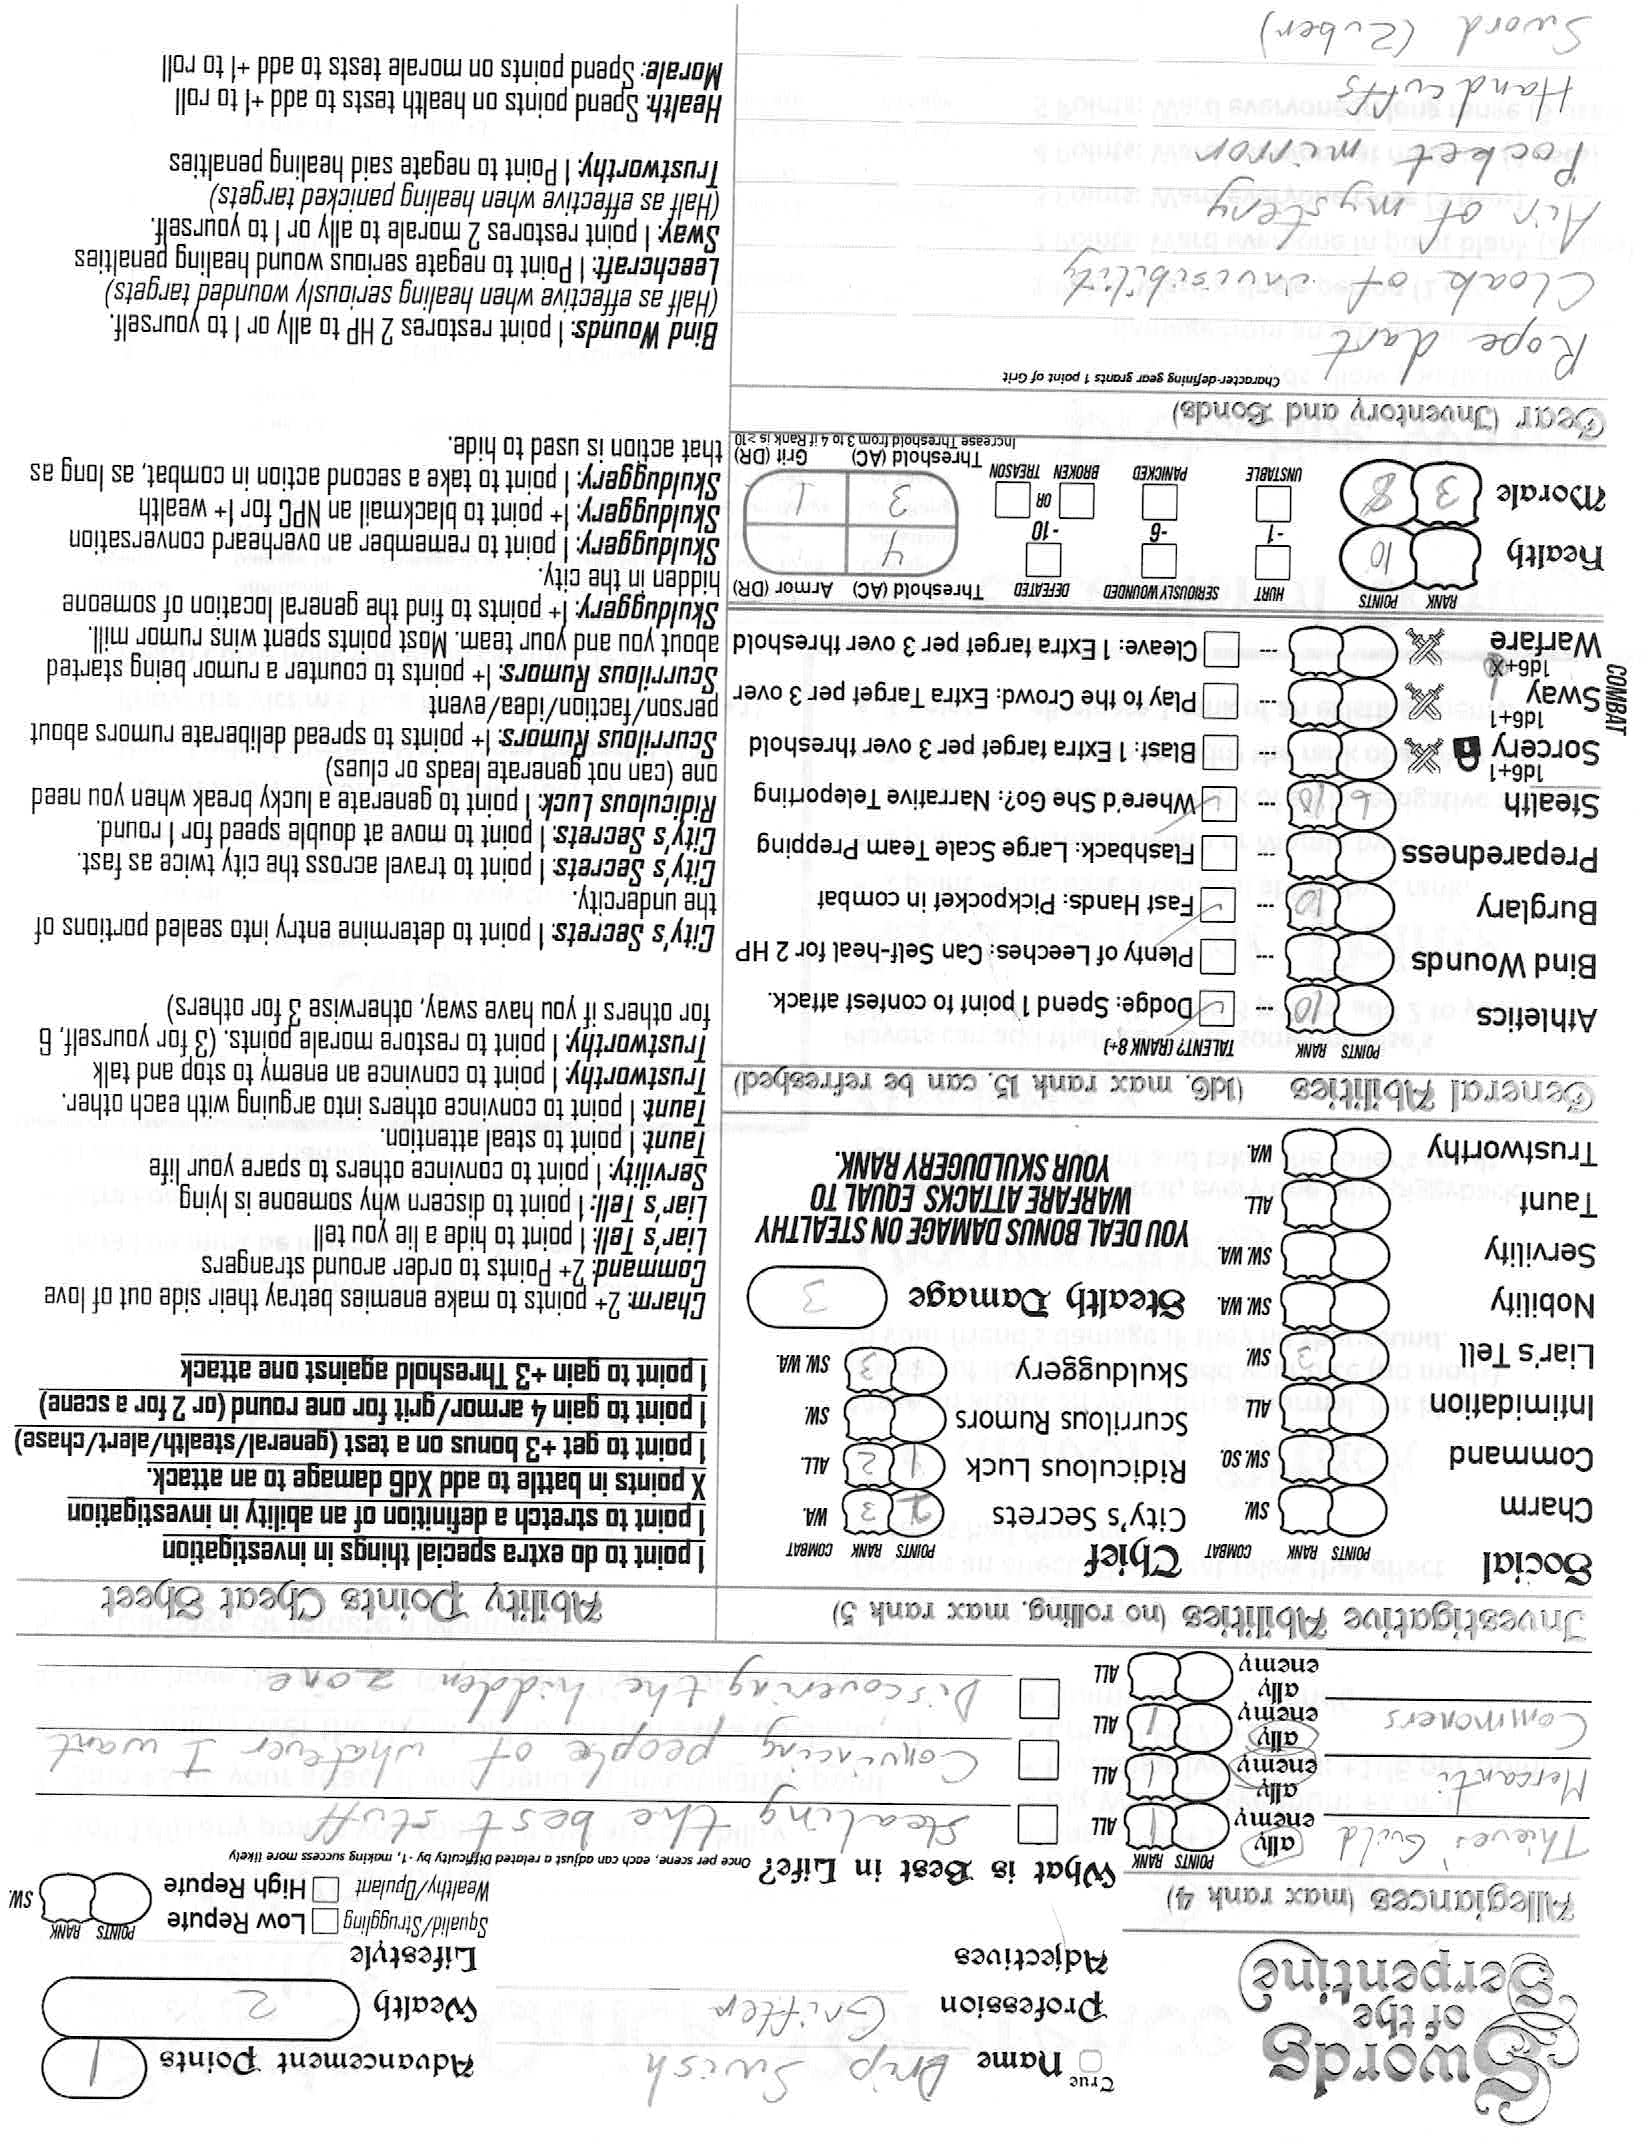 Swords
of the
Serpentine
True
Name Drip Swish
Profession Grifter
Adjectives
Advancement Points 1
Wealth 2
Lifestyle
Squalid/Struggling Low Repute
Wealthy/Opulent High Repute
POINTS RANK
SW.
Allegiances (max rank 4)
POINTS RANK
Thieves' Guild ally enemy 1 ALL
Mercanti ally enemy 1 ALL
Commoners ally enemy 1 ALL
ally enemy ALL
What is Best in Life? Once per scene, each can adjust a related Difficulty by -1, making success more likely
Stealing the best stuff
Convincing people of whatever I want
Discovering the hidden zone
Investigative Abilities (no rolling, max rank 5)
Social POINTS RANK COMBAT
Charm SW
Command SW SO.
Intimidation ALL
Liar's Tell 3 SW
Nobility SW. WA.
Servility SW. WA.
Taunt ALL
Trustworthy WA.
Chief POINTS RANK COMBAT
City's Secrets 3 WA.
Ridiculous Luck 1 2 ALL
Scurrilous Rumors SW.
Skulduggery 3 SW. WA.
Stealth Damage 3
YOU DEAL BONUS DAMAGE ON STEALTHY
WARFARE ATTACKS EQUAL TO
YOUR SKULDUGERY RANK.
General Abilities (1d6, max rank 15, can be refreshed)
POINTS RANK TALENT? (RANK 8+)
Athletics 10 --- Dodge: Spend 1 point to contest attack.
Bind Wounds --- Plenty of Leeches: Can Self-heal for 2 HP
Burglary 10 --- Fast Hands: Pickpocket in combat
Preparedness --- Flashback: Large Scale Team Prepping
Stealth 6 10 --- Where'd She Go?: Narrative Teleporting
COMBAT
1d6+1
Sorcery --- Blast: 1 Extra target per 3 over threshold
1d6+1
Sway --- Play to the Crowd: Extra Target per 3 over
1d6+
Warfare --- Cleave: 1 Extra target per 3 over threshold
RANK POINTS HURT SERIOUSLY WOUNDED DEFEATED Threshold (AC) Armor (DR)
Health 10 4
-1 -6 -10
Morale 3 8 OR 3 1
UNSTABLE PANICKED BROKEN TREASON Threshold (AC) Grit (DR)
Increase Threshold from 3 to 4 if Rank is ≥10
Gear (Inventory and Bonds)
Character-defining gear grants 1 point of Grit
Rope dart
Cloak of invisibility
Air of mystery
Pocket mirror
Handcuffs
Sword (Zuber)
Ability Points Cheat Sheet
1 point to do extra special things in investigation
1 point to stretch a definition of an ability in investigation
X points in battle to add Xd6 damage to an attack.
1 point to get +3 bonus on a test (general/stealth/alert/chase)
1 point to gain 4 armor/grit for one round (or 2 for a scene)
1 point to gain +3 Threshold against one attack
Charm: 2+ points to make enemies betray their side out of love
Command: 2+ Points to order around strangers
Liar's Tell: 1 point to hide a lie you tell
Liar's Tell: 1 point to discern why someone is lying
Servility: 1 point to convince others to spare your life
Taunt: 1 point to steal attention.
Taunt: 1 point to convince others into arguing with each other.
Trustworthy: 1 point to convince an enemy to stop and talk
Trustworthy: 1 point to restore morale points. (3 for yourself, 6
for others if you have sway, otherwise 3 for others)
City's Secrets: 1 point to determine entry into sealed portions of
the undercity.
City's Secrets: 1 point to travel across the city twice as fast.
City's Secrets: 1 point to move at double speed for 1 round.
Ridiculous Luck: 1 point to generate a lucky break when you need
one (can not generate leads or clues)
Scurrilous Rumors: 1+ points to spread deliberate rumors about
person/faction/idea/event
Scurrilous Rumors: 1+ points to counter a rumor being started
about you and your team. Most points spent wins rumor mill.
Skulduggery: 1+ points to find the general location of someone
hidden in the city.
Skulduggery: 1 point to remember an overheard conversation
Skulduggery: 1+ point to blackmail an NPC for 1+ wealth
Skulduggery: 1 point to take a second action in combat, as long as
that action is used to hide.
Bind Wounds: 1 point restores 2 HP to ally or 1 to yourself.
(Half as effective when healing seriously wounded targets)
Leechcraft: 1 Point to negate serious wound healing penalties
Sway: 1 point restores 2 morale to ally or 1 to yourself.
(Half as effective when healing panicked targets)
Trustworthy: 1 Point to negate said healing penalties
Health: Spend points on health tests to add +1 to roll
Morale: Spend points on morale tests to add +1 to roll